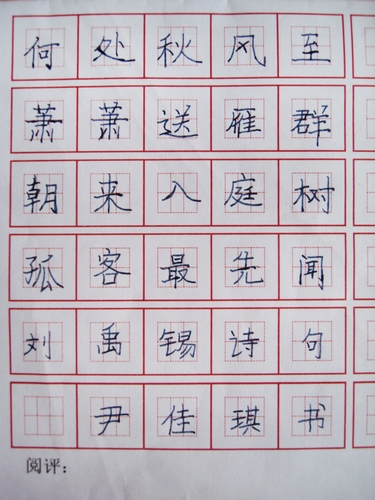 何处秋风至
萧萧送雁群
朝来入庭树
孤客最先闻
刘禹锡诗句
尹佳琪书
阅评：